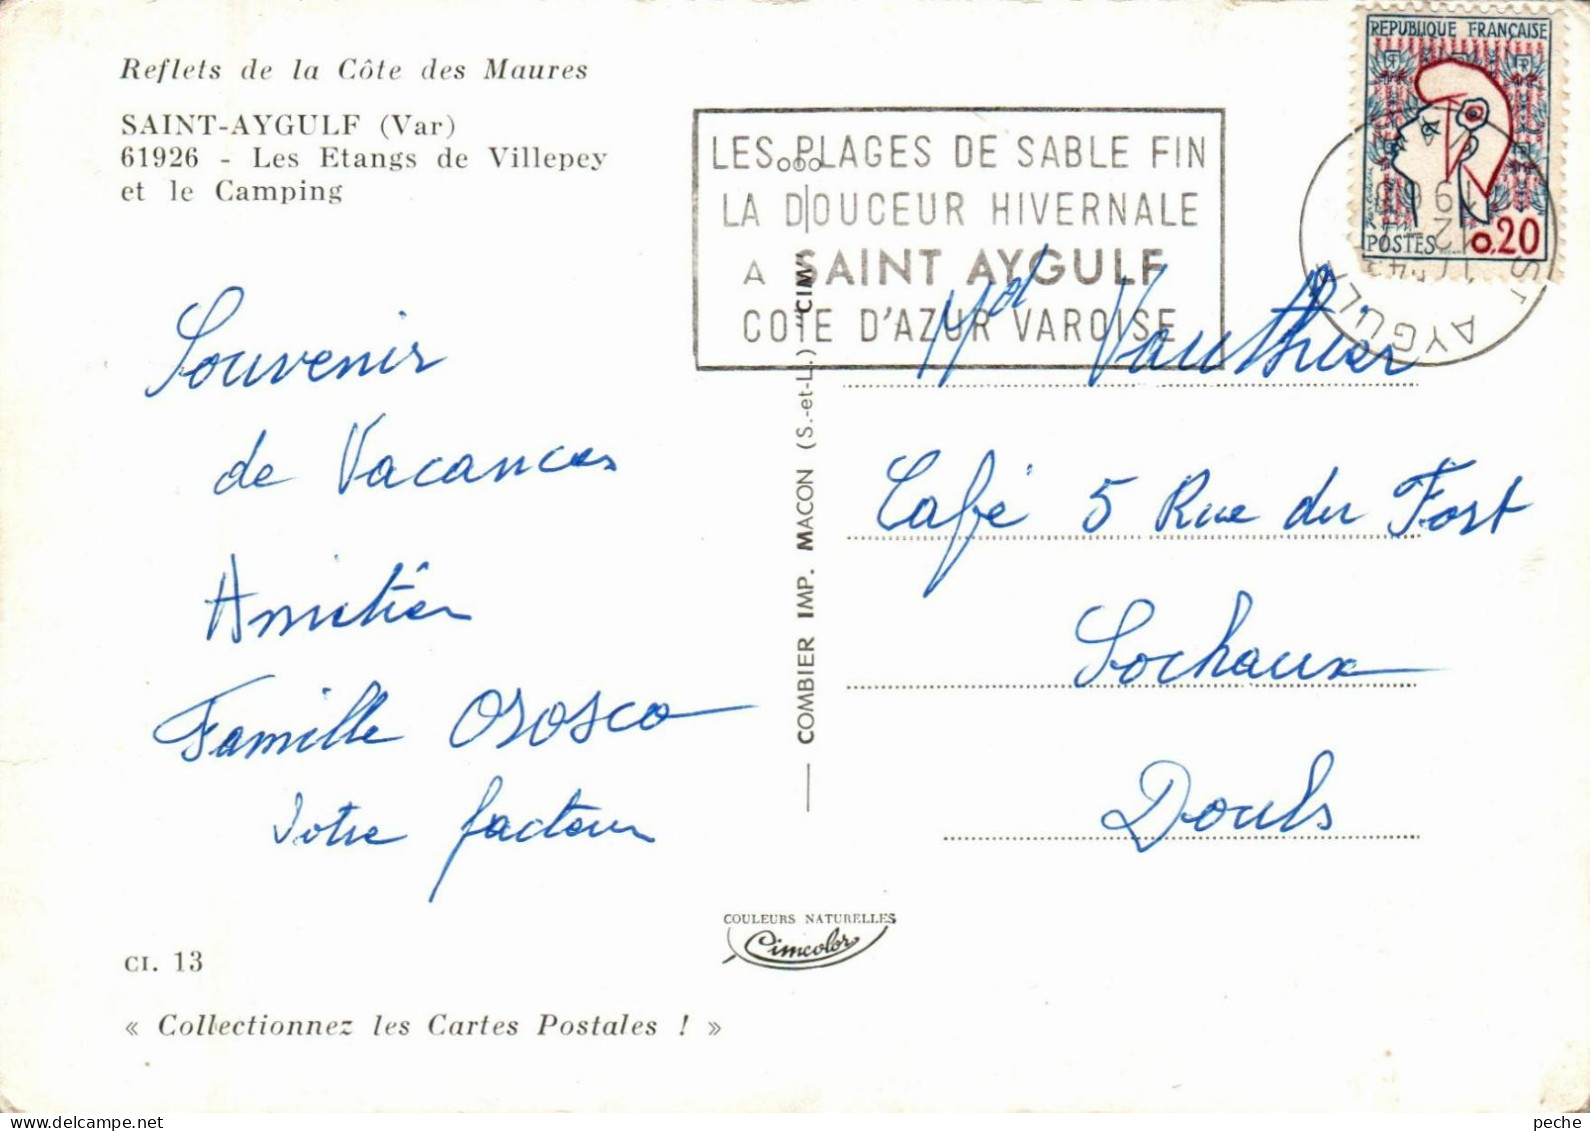 Reflets de la Côte des Maures
SAINT-AYGULF (Var)
61926 - Les Etangs de Villepey
et le Camping
LES PLAGES DE SABLE FIN
LA DOUCEUR HIVERNALE
A SAINT AYGULF
COTE D'AZUR VAROISE
REPUBLIQUE FRANÇAISE
POSTES 0,20
ST AYGULF
Souvenir
de Vacances
Amitiés
Famille Orosco
Votre facteur
COMBIER IMP. MACON (S.-et-L.) "CIM"
Md Vauthier
Café 5 Rue du Fort
Sochaux
Doubs
COULEURS NATURELLES
Cimcolor
CI. 13
« Collectionnez les Cartes Postales ! »
peche